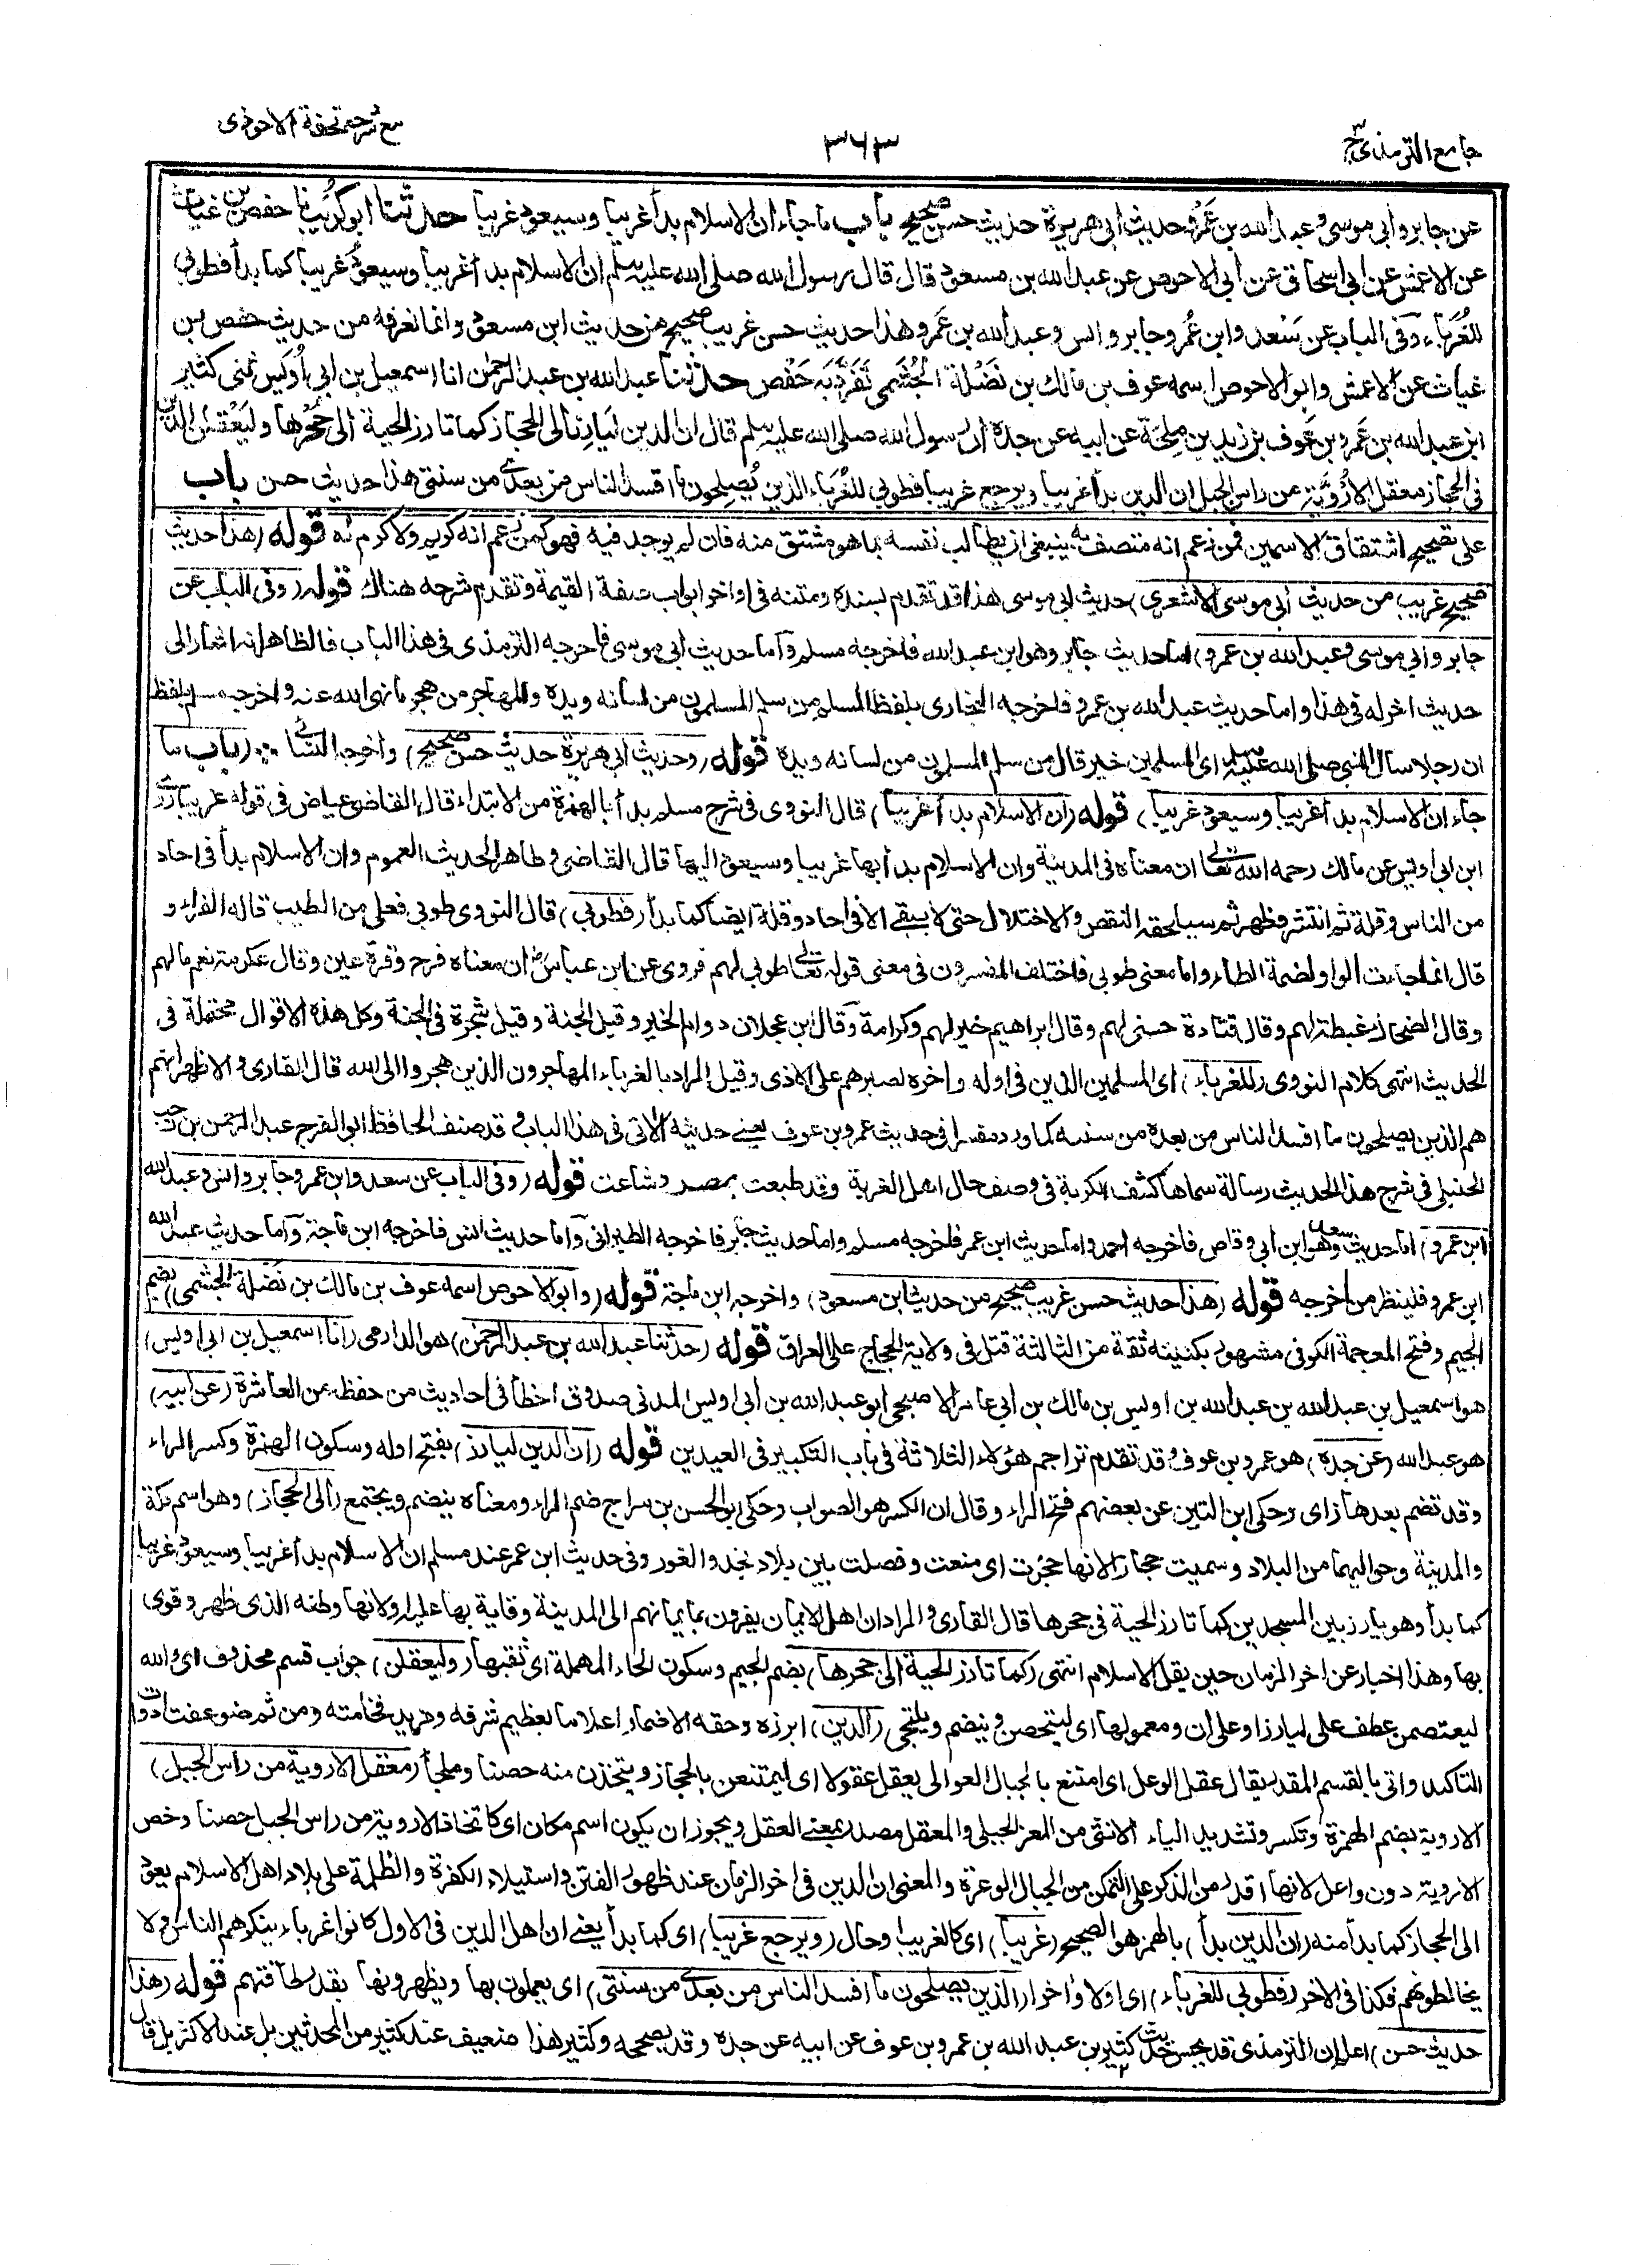 جامع الترمذي ج٣
٣٦٣
مع شرحه تحفة الاحوذى
عن جابر وأبي موسى وعبد الله بن عَمْرو حديث أبي هريرة حديث حسن صحيح باب ما جاء ان الاسلام بدأ غريبا وسيعود غريبا حدثنا ابو كُرَيب نا حفص بن غياث
عن الاعمش عن ابي اسحاق عن ابي الاحوص عن عبد الله بن مسعود قال قال رسول الله صلى الله عليه وسلم ان الاسلام بدأ غريبا وسيعود غريبا كما بدأ فطوبى
للغُرَبَاء وفى الباب عن سَعد وابن عُمر وجابر وانس وعبد الله بن عَمرو وهذا حديث حسن غريب صحيح من حديث ابن مسعود وانما نعرفه من حديث حفص بن
غياث عن الاعمش وابو الاحوص اسمه عوف بن مالك بن نَضْلة الجُشَمى تَفَرَّد به حَفْص حدثنا عبد الله بن عبد الرحمٰن انا اسمعيل بن ابي أُوَيس ثنى كثير
ابن عبد الله بن عَمرو بن عَوف بن زيد بن مِلْحَة عن ابيه عن جده ان رسول الله صلى الله عليه وسلم قال ان الدين لَيَارِز الى الحجاز كما تارز الحية الى جُحْرها ولَيَعْقلن الدين
فى الحجاز معقل الأُرْوِيَّة من راس الجبل ان الدين بدأ غريبا ويرجع غريبا فطوبى للغُرَباء الذين يُصلِحون ما افسد الناس من بعدى من سنتى هذا حديث حسن باب
على تصحيح اشتقاق الاسمين فمن زعم انه متصف به ينبغى ان يطالب نفسه بما هو مشتق منه فان لم يوجد فيه فهو كمن زعم انه كريم ولا كرم له قوله (هذا حديث
صحيح غريب من حديث ابي موسى الاشعرى) حديث ابي موسى هذا قد تقدم بسنده ومتنه فى اواخر ابواب صفة القيمة وتقدم شرحه هناك قوله (وفى الباب عن
جابر وابي موسى وعبد الله بن عمرو) اما حديث جابر وهو ابن عبد الله فاخرجه مسلم وأما حديث أبي موسى فاخرجه الترمذى فى هذا الباب فالظاهر انه اشار الى
حديث اخر له فى هذا واما حديث عبد الله بن عمرو فاخرجه البخارى بلفظ المسلم من سلم المسلمون من لسانه ويده والمهاجر من هجر ما نهى الله عنه واخرجه مسلم بلفظ
ان رجلا سأل النبي صلى الله عليه وسلم اى المسلمين خير قال من سلم المسلمون من لسانه ويده قوله (وحديث ابي هريرة حديث حسن صحيح) واخرجه النسائى (باب ما
جاء ان الاسلام بدأ غريبا وسيعود غريبا) قوله (ان الاسلام بدأ غريبا) قال النووى فى شرح مسلم بدأ بالهمزة من الابتداء قال القاضى عياض فى قوله غريبا روى
ابن ابي اويس عن مالك رحمه الله تعالى ان معناه فى المدينة وان الاسلام بدأ بها غريبا وسيعود اليها قال القاضى وظاهر الحديث العموم وان الاسلام بدأ فى احاد
من الناس وقلة ثم انتشر وظهر ثم سيلحقه النقص والاختلال حتى لا يبقى الا فى احاد وقلة ايضا كما بدأ (فطوبى) قال النووى طوبى فعلى من الطيب قاله الفراء و
قال انما جاءت الواو لضمة الطاء واما معنى طوبى فاختلف المفسرون فى معنى قوله تعالى طوبى لهم فروى عن ابن عباس ان معناه فرح وقرة عين وقال عكرمة نعم ما لهم
وقال الضحاك غبطة لهم وقال قتادة حسنى لهم وقال ابراهيم خير لهم وكرامة وقال ابن عجلان دوام الخير وقيل الجنة وقيل شجرة فى الجنة وكل هذه الاقوال محتملة فى
الحديث انتهى كلام النووى (للغرباء) اى المسلمين الذين فى اوله واخره لصبرهم على الاذى وقيل المراد بالغرباء المهاجرون الذين هجروا الى الله قال القارى والاظهر انهم
هم الذين يصلحون ما افسد الناس من بعده من سنته كما ورد مفسرا فى حديث عمرو بن عوف يعنى حديثه الاتى فى هذا الباب وقد صنف الحافظ ابو الفرج عبد الرحمن بن رجب
الحنبلى فى شرح هذا الحديث رسالة سماها كشف الكربة فى وصف حال اهل الغربة وقد طبعت بمصر وشاعت قوله (وفى الباب عن سعد وابن عمر وجابر وانس وعبد الله
ابن عمرو) اما حديث سعد وهو ابن أبي وقاص فاخرجه احمد واما حديث ابن عمر فاخرجه مسلم واما حديث جابر فاخرجه الطبرانى وأما حديث انس فاخرجه ابن ماجة وأما حديث عبد الله
ابن عمرو فلينظر من أخرجه قوله (هذا حديث حسن غريب صحيح من حديث ابن مسعود) واخرجه ابن ماجة قوله (وابو الاحوص اسمه عوف بن مالك بن نضلة الجشمى) بضم
الجيم وفتح المعجمة الكوفى مشهور بكنيته ثقة من الثالثة قتل فى ولاية الحجاج على العراق قوله (حدثنا عبد الله بن عبد الرحمن) هو الدارمى (انا اسمعيل بن ابي اويس)
هو اسمعيل بن عبد الله بن عبد الله بن اويس بن مالك بن أبي عامر الاصبحى ابو عبد الله بن أبى اويس المدنى صدوق اخطأ فى احاديث من حفظه من العاشرة (عن ابيه)
هو عبد الله (عن جده) هو عمرو بن عوف وقد تقدم تراجم هؤلاء الثلاثة فى باب التكبير فى العيدين قوله (ان الدين ليارز) بفتح اوله وسكون الهمزة وكسر الراء
وقد تضم بعدها زاى وحكى ابن التين عن بعضهم فتح الراء وقال ان الكسر هو الصواب وحكى ابو الحسن بن سراج ضم الراء ومعناه ينضم ويجتمع (الى الحجاز) وهو اسم مكة
والمدينة وحواليهما من البلاد وسميت حجازا لانها حجزت اى منعت وفصلت بين بلاد نجد والغور وفى حديث ابن عمر عند مسلم ان الاسلام بدأ غريبا وسيعود غريبا
كما بدأ وهو يارز بين المسجدين كما تارز الحية فى جحرها قال القارى والمراد ان اهل الايمان يفرون بايمانهم الى المدينة وقاية بها عليه او لانها وطنه الذى ظهر وقوى
بها وهذا اخبار عن اخر الزمان حين يقل الاسلام انتهى (كما تارز الحية الى جحرها) بضم الجيم وسكون الحاء المهملة اى ثقبها (وليعقلن) جواب قسم محذوف اى والله
ليعتصمن عطف على ليارز او على ان ومعمولها اى ليتحصن وينضم ويلتجى (الدين) ابرزه وحقه الاضمار اعلاما بعظيم شرفه ومزيد فخامته ومن ثم ضوعفت ادوات
التاكيد واتى بالقسم المقدر يقال عقل الوعل اى امتنع بالجبال العوالى يعقل عقولا اى ليمتنعن بالحجاز ويتخذن منه حصنا وملجأ (معقل الاروية من راس الجبل)
الاروية بضم الهمزة وتكسر وتشديد الياء الانثى من المعز الجبلى والمعقل مصدر بمعنى العقل ويجوز ان يكون اسم مكان اى كاتخاذ الاروية من راس الجبل حصنا وخص
الاروية دون واعل لانها اقدر من الذكر على التمكن من الجبال الوعرة والمعنى ان الدين فى اخر الزمان عند ظهور الفتن واستيلاء الكفرة والظلمة على بلاد اهل الاسلام يعود
الى الحجاز كما بدأ منه (ان الدين بدأ) بالهمز هو الصحيح (غريبا) اى كالغريب او حال (ويرجع غريبا) اى كما بدأ يعنى ان اهل الدين فى الاول كانوا غرباء ينكرهم الناس ولا
يخالطونهم فكذا فى الاخر (فطوبى للغرباء) اى اولا وأخرا (الذين يصلحون ما افسد الناس من بعدى من سنتى) اى يعملون بها ويظهرونها بقدر طاقتهم قوله (هذا
حديث حسن) اعلم ان الترمذى قد يحسن حديث كثير بن عبد الله بن عمرو بن عوف عن ابيه عن جده وقد يصححه وكثير هذا ضعيف عند كثير من المحدثين بل عند الاكثر بل قال